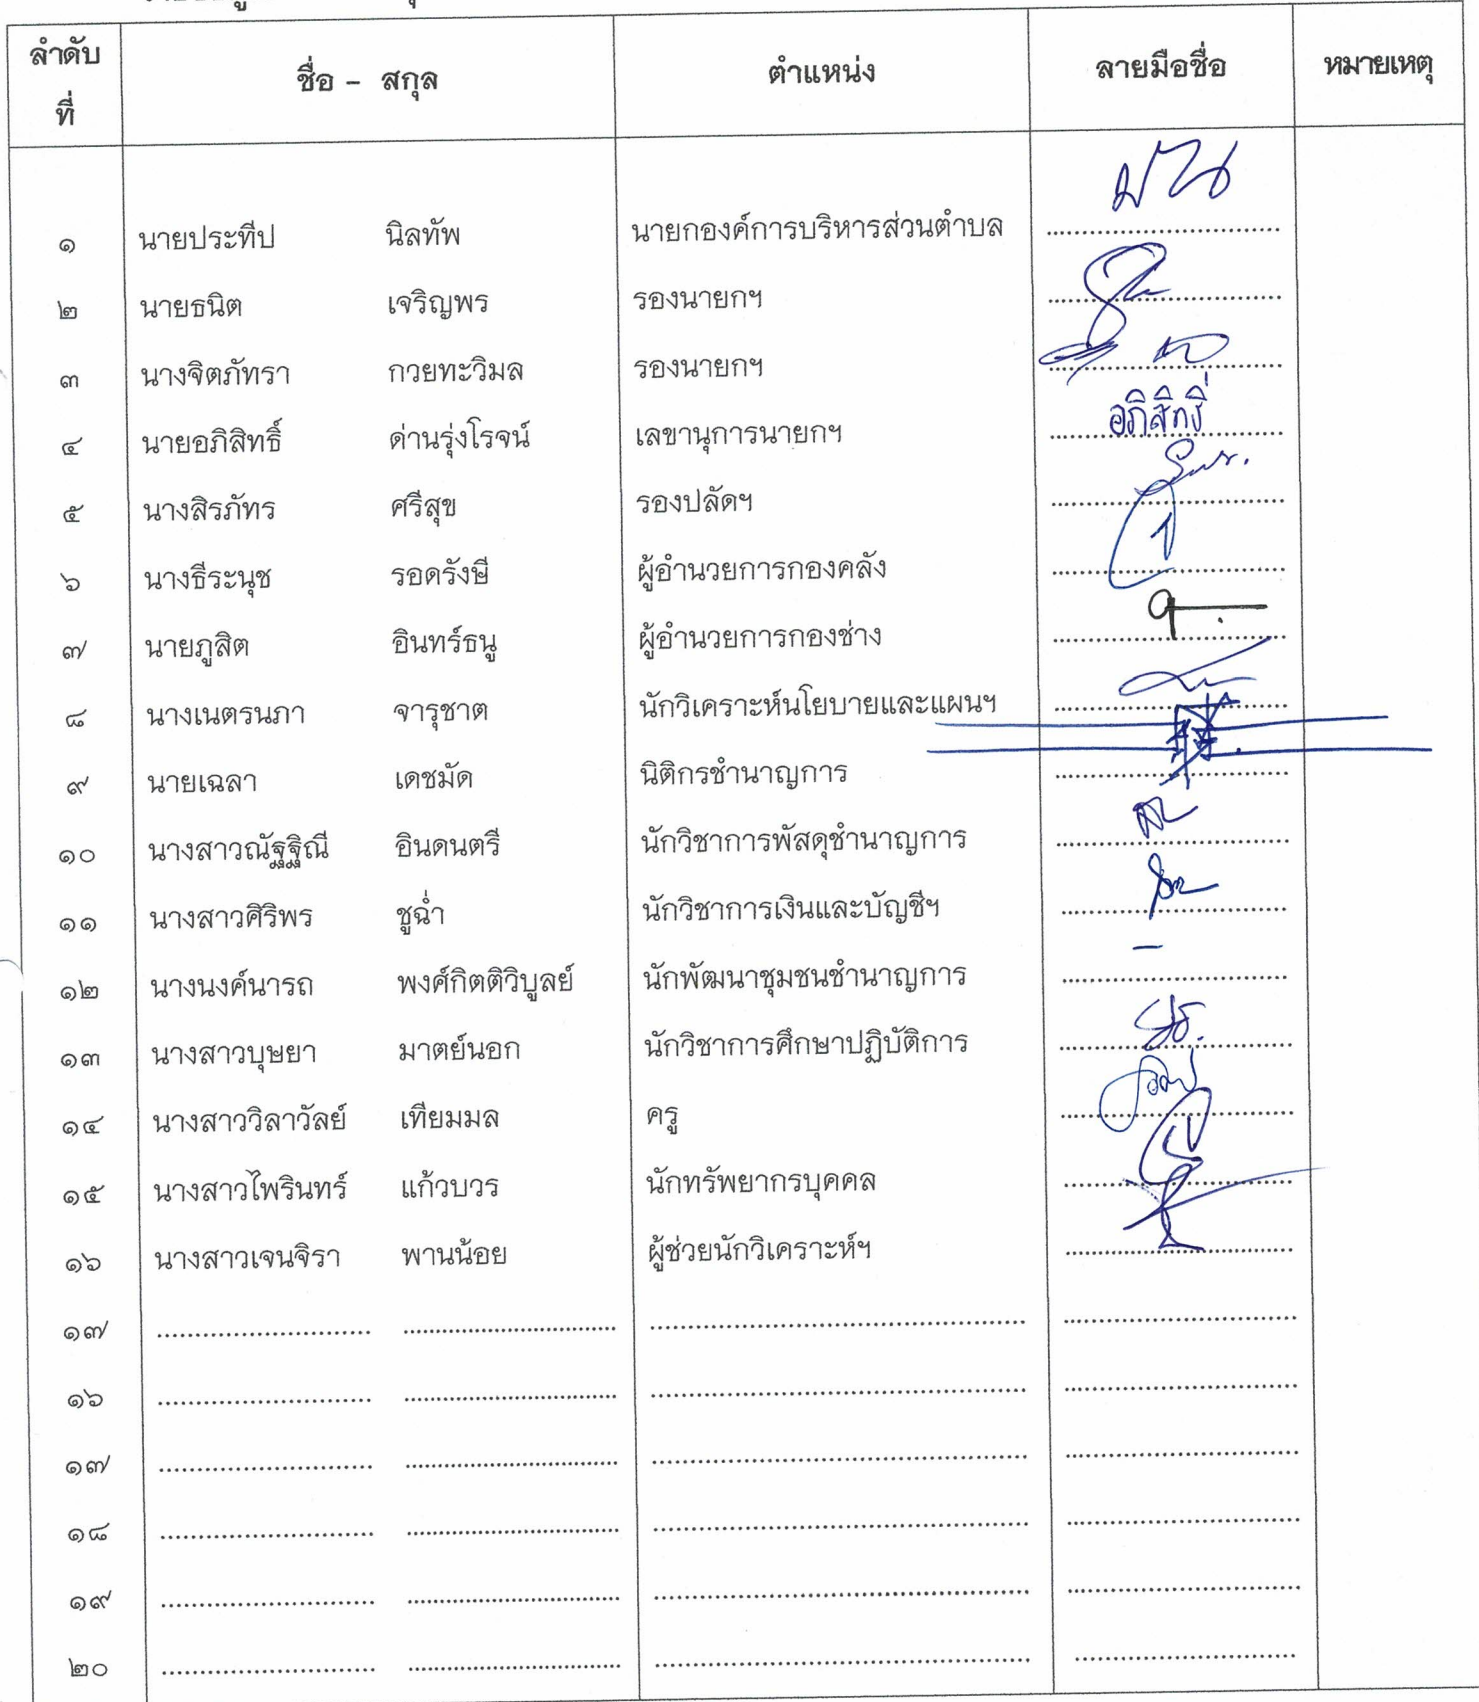 ลำดับ
ที่
ชื่อ - สกุล
ตำแหน่ง
ลายมือชื่อ
หมายเหตุ
๑ นายประทีป นิลทัพ นายกองค์การบริหารส่วนตำบล
๒ นายธนิต เจริญพร รองนายกฯ
๓ นางจิตภัทรา กวยทะวิมล รองนายกฯ
๔ นายอภิสิทธิ์ ด่านรุ่งโรจน์ เลขานุการนายกฯ อภิสิทธิ์
๕ นางสิรภัทร ศรีสุข รองปลัดฯ
๖ นางธีระนุช รอดรังษี ผู้อำนวยการกองคลัง
๗ นายภูสิต อินทร์ธนู ผู้อำนวยการกองช่าง
๘ นางเนตรนภา จารุชาต นักวิเคราะห์นโยบายและแผนฯ
๙ นายเฉลา เดชมัด นิติกรชำนาญการ
๑๐ นางสาวณัฐฐิณี อินดนตรี นักวิชาการพัสดุชำนาญการ
๑๑ นางสาวศิริพร ชูฉ่ำ นักวิชาการเงินและบัญชีฯ
๑๒ นางนงค์นารถ พงศ์กิตติวิบูลย์ นักพัฒนาชุมชนชำนาญการ -
๑๓ นางสาวบุษยา มาตย์นอก นักวิชาการศึกษาปฏิบัติการ
๑๔ นางสาววิลาวัลย์ เทียมมล ครู
๑๕ นางสาวไพรินทร์ แก้วบวร นักทรัพยากรบุคคล
๑๖ นางสาวเจนจิรา พานน้อย ผู้ช่วยนักวิเคราะห์ฯ
๑๗
๑๖
๑๗
๑๘
๑๙
๒๐